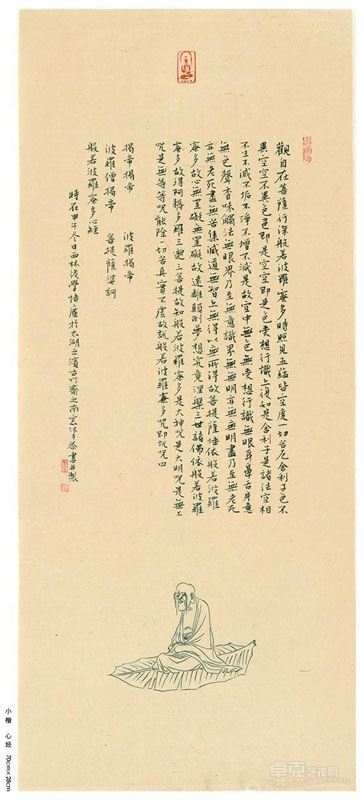 觀自在菩薩行深般若波羅蜜多時照見五蘊皆空度一切苦厄舍利子色不
異空空不異色色即是空空即是色受想行識亦復如是舍利子是諸法空相
不生不滅不垢不淨不增不減是故空中無色無受想行識無眼耳鼻舌身意
無色聲香味觸法無眼界乃至無意識界無無明亦無無明盡乃至無老死
亦無老死盡無苦集滅道無智亦無得以無所得故菩提薩埵依般若波羅
蜜多故心無罣礙無罣礙故遠離顛倒夢想究竟涅槃三世諸佛依般若波羅
蜜多故得阿耨多羅三藐三菩提故知般若波羅蜜多是大神咒是大明咒是無上
咒是無等等咒能除一切苦真實不虛故說般若波羅蜜多咒即說咒曰
揭帝揭帝 波羅揭帝
波羅僧揭帝 菩提薩婆訶
般若波羅蜜多心經
時在甲午冬日西林淺學悟 於太湖之濱古竹齋之南 沐手恭書并製
小楷 心经 70cm×28cm
卓克艺术网